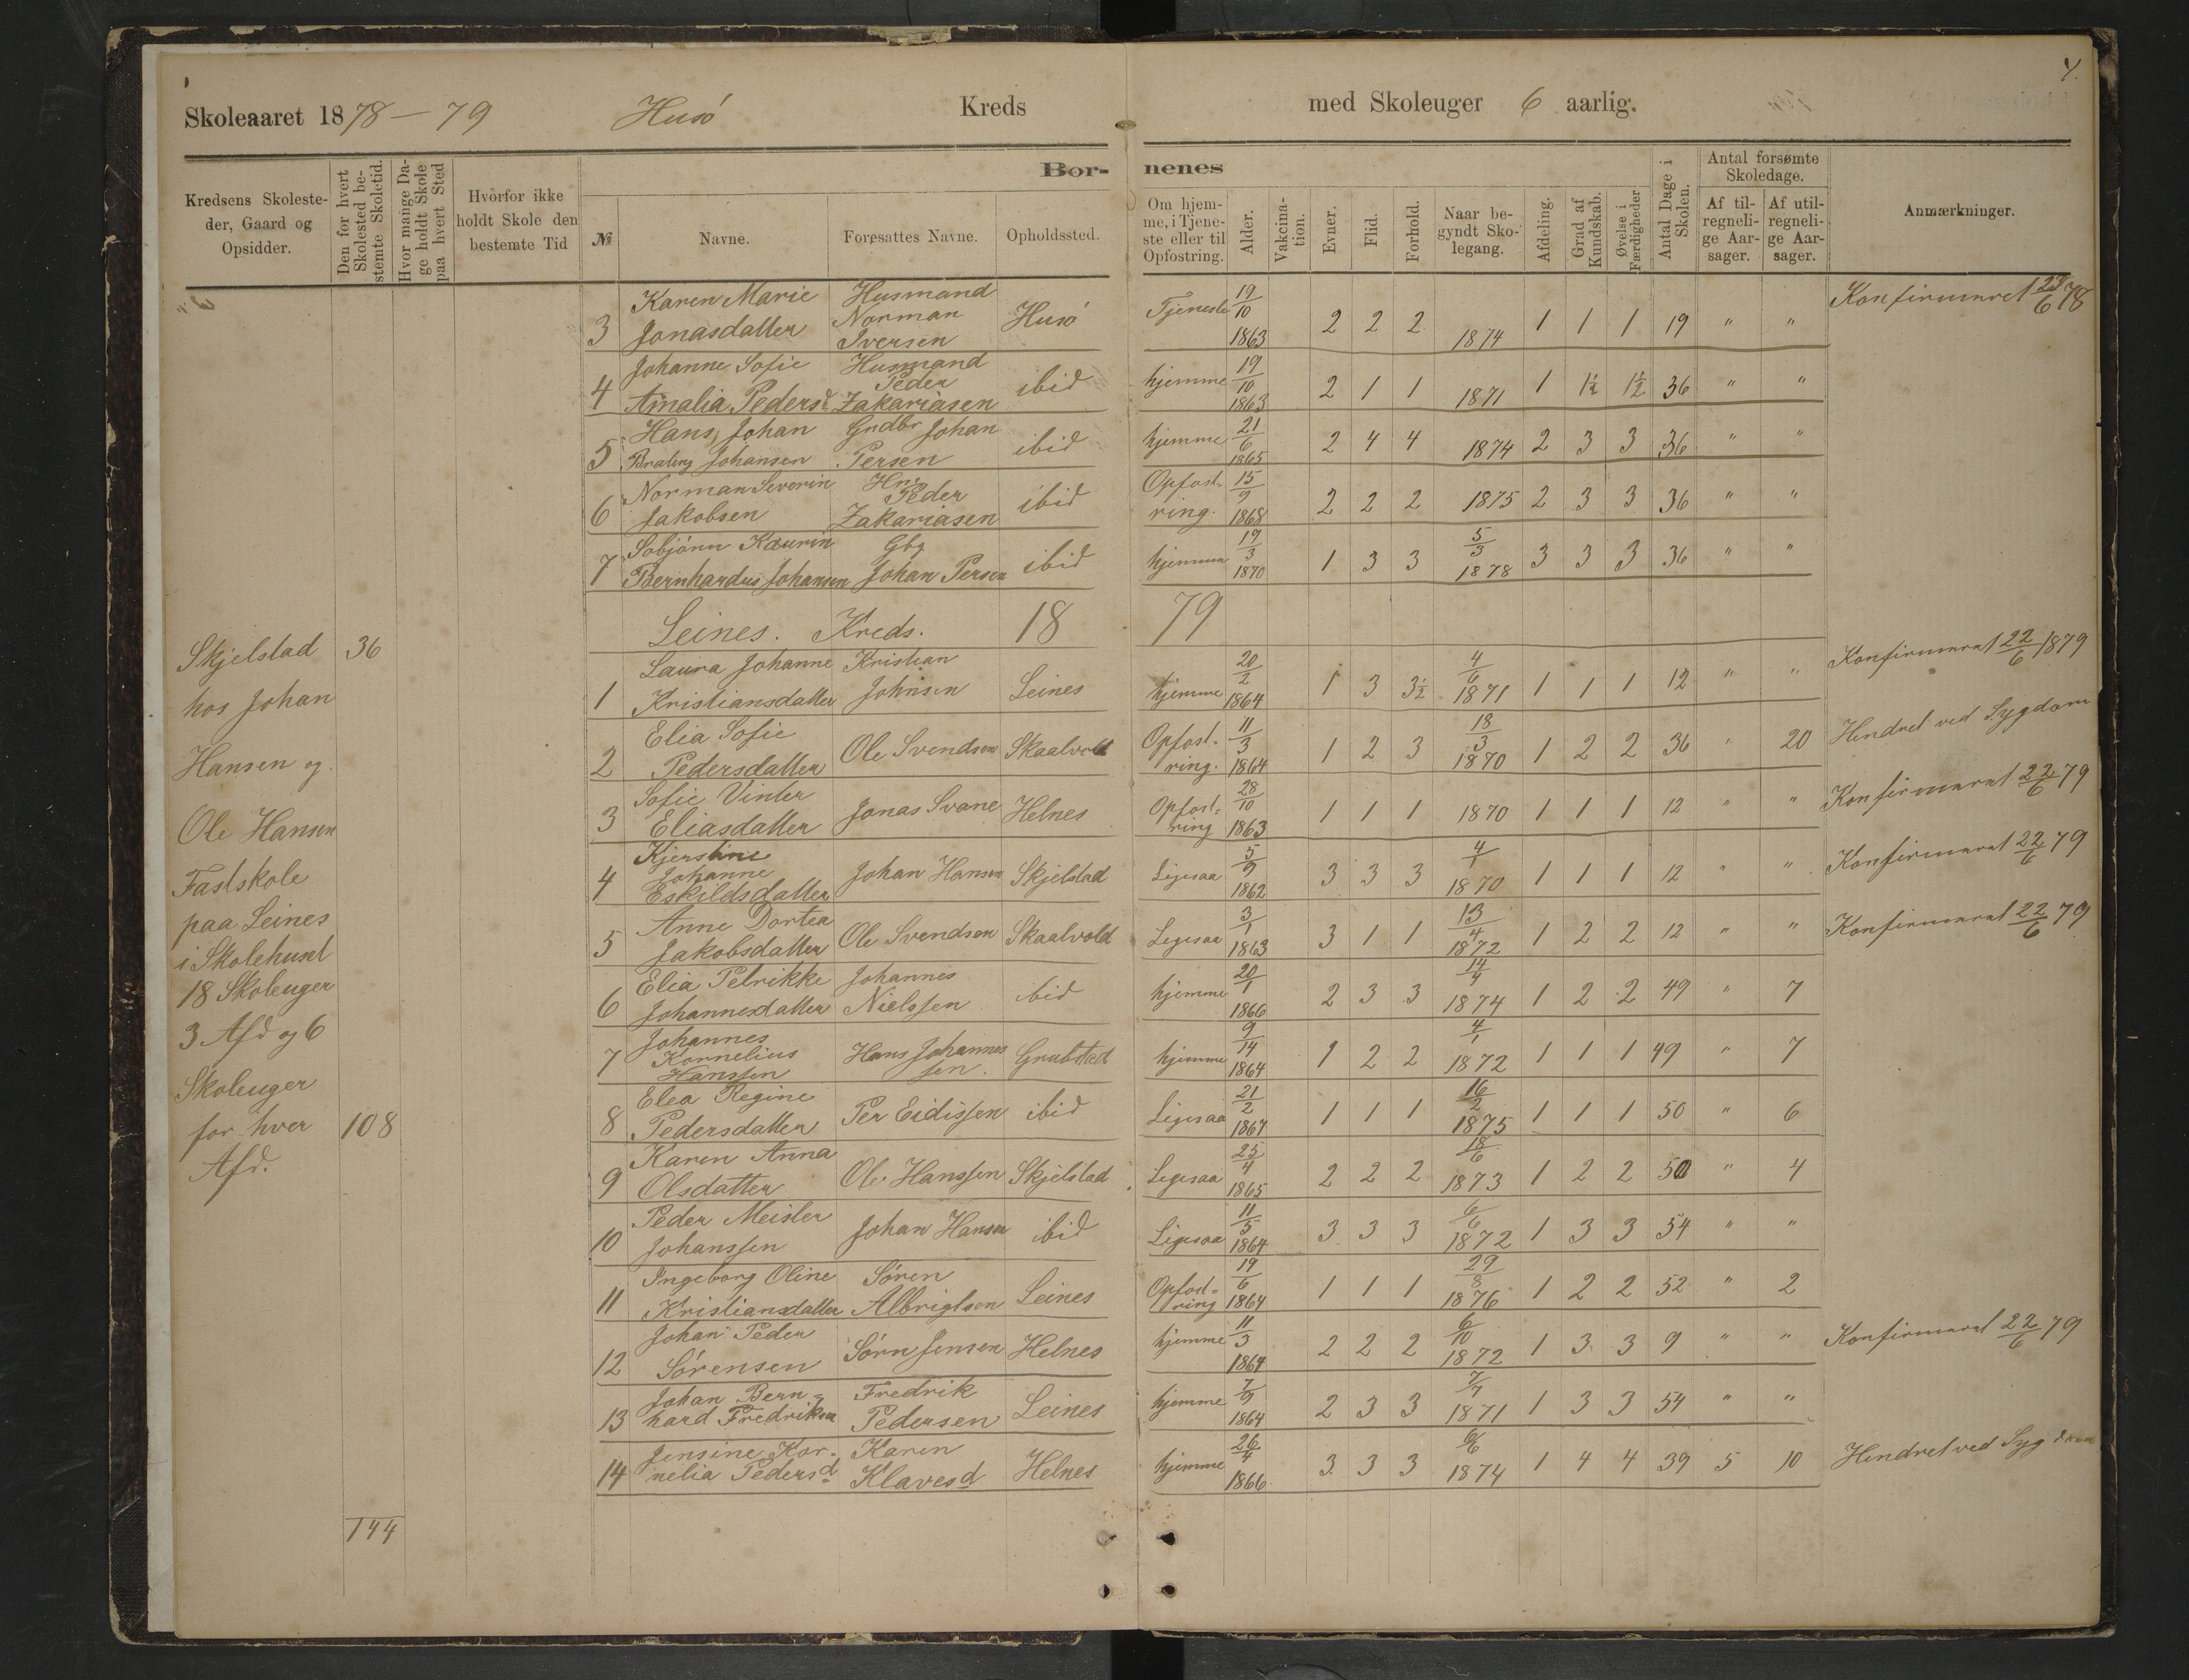 Skoleaaret 1878-79 Husö Kreds med Skoleuger 6 aarlig. 4.
Kredsens Skoleste-
der, Gaard og
Opsidder.
Den for hvert
Skolested be-
stemte Skoletid.
Hvor mange Da-
ge holdt Skole
paa hvert Sted
Hvorfor ikke
holdt Skole den
bestemte Tid
Bor- nenes
№
Navne.
Foresattes Navne.
Opholdssted.
Om hjem-
me, i Tjene-
ste eller til
Opfostring.
Alder.
Vakcina-
tion.
Evner.
Flid.
Forhold.
Naar be-
gyndt Sko-
legang.
Afdeling.
Grad af
Kundskab.
Øvelse i
Færdigheder
Antal Dage i
Skolen.
Antal forsømte
Skoledage.
Af til-
regneli-
ge Aar-
sager.
Af util-
regneli-
ge Aar-
sager.
Anmærkninger.
3 Karen Marie Jonasdatter Husmand Norman Iversen Husö Tjeneste 19/10 1863 2 2 2 1874 1 1 1 19 " " Konfirmeret 23/6 78
4 Johanne Sofie Amalia Pedersd Husmand Peder Zakariasen ibid hjemme 19/10 1863 2 1 1 1871 1 1½ 1½ 36 " "
5 Hans Johan Johansen Gndbr Johan Persen ibid hjemme 21/6 1865 2 4 4 1874 2 3 3 36 " "
6 Norman Severin Jakobsen Hm. Peder Zakariasen ibid Opfost-ring. 15/9 1868 2 2 2 1875 2 3 3 36 " "
7 Sobjönn Kaurin Bernhardus Johansen Gbg Johan Persen ibid hjemme 19/3 1870 1 3 3 5/3 1878 3 3 3 36 " "
Leines. Kreds. 18 79
1 Laura Johanne Kristiansdatter Kristian Johnsen Leines hjemme 20/2 1864 1 3 3½ 4/6 1871 1 1 1 12 " " Konfirmeret 22/6 1879
2 Elia Sofie Pedersdatter Ole Svendsen Skaalvold Opfost-ring. 11/3 1864 1 2 3 18/3 1870 1 2 2 36 " 20 Hindret ved Sygdom
3 Sofie Vinter Eliasdatter Jonas Svane Helnes Opfost-ring 28/10 1863 1 1 1 1870 1 1 1 12 " " Konfirmeret 22/6 79
4 Kjerstine Johanne Eskildsdatter Johan Hansen Skjelstad Ligesaa 5/9 1862 3 3 3 4/1 1870 1 1 1 12 " " Konfirmeret 22/6 79
5 Anne Dortea Jakobsdatter Ole Svendsen Skaalvold Ligesaa 3/1 1863 3 1 1 13/4 1872 1 2 2 12 " " Konfirmeret 22/6 79
6 Elia Petrikke Johannesdatter Johannes Nielssen ibid hjemme 20/1 1866 2 3 3 14/4 1874 1 2 2 49 " 7
7 Johannes Kornelius Hanssen Hans Johannes sen. Grubsted hjemme 9/14 1864 1 2 2 4/1 1872 1 1 1 49 " 7
8 Elea Regine Pedersdatter Per Eidissen ibid Ligesaa 21/2 1867 1 1 1 16/2 1875 1 1 1 50 " 6
9 Karen Anna Olsdatter Ole Hanssen Skjelstad Ligesaa 25/4 1865 2 2 2 18/6 1873 1 2 2 50 " 4
10 Peder Meisler Johanssen Johan Hansen ibid Ligesaa 11/5 1864 3 3 3 6/6 1872 1 3 3 54 " "
11 Ingeborg Oline Kristiansdatter Sören Albrigtsen Leines Opfost-ring 19/6 1864 1 1 1 29/8 1876 1 2 2 52 " 2
12 Johan Peder Sörensen Sörn Jensen Helnes hjemme 11/3 1864 2 2 2 6/10 1872 1 3 3 9 " " Konfirmeret 22/6 79
13 Johan Bern-hard Fredriksen Fredrik Pedersen Leines hjemme 7/9 1864 2 3 3 7/7 1871 1 3 3 54 " "
14 Jensine Kor-nelia Pedersd Karen Klavesd Helnes hjemme 26/4 1866 3 3 3 6/6 1874 1 4 4 39 5 10 Hindret ved Sygdom
Skjelstad 36
hos Johan
Hansen og
Ole Hansen
Fastskole
paa Leines
i Skolehuset
18 Skoleuger
3 Afd og 6
Skoleuger
for hver 108
Afd.
144